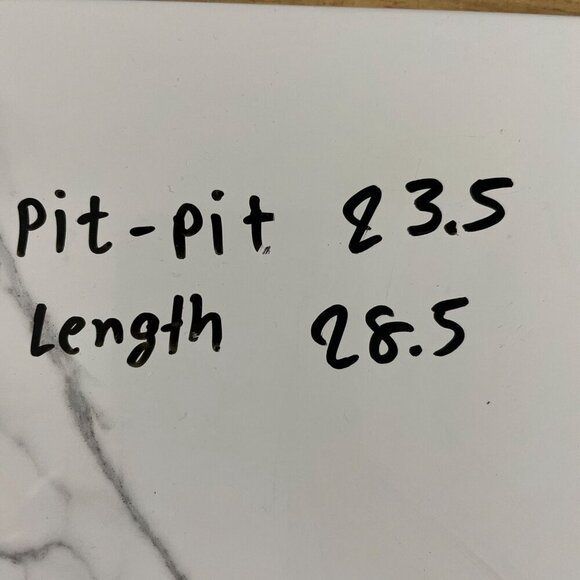 Pit-Pit 23.5
Length 28.5